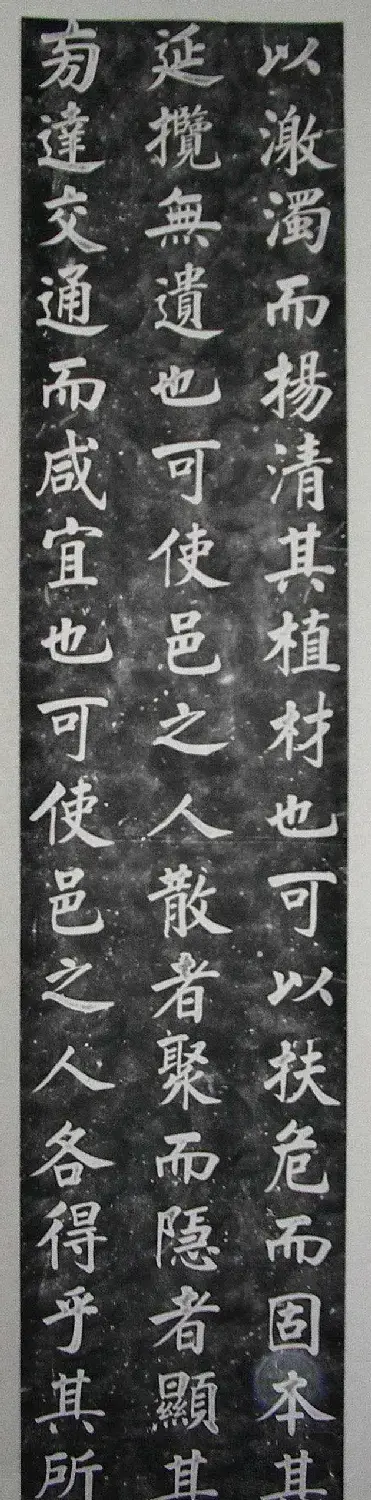 以激濁而揚清其植材也可以扶危而固本其
延攬無遺也可使邑之人散者聚而隱者顯其
旁達交通而咸宜也可使邑之人各得乎其所